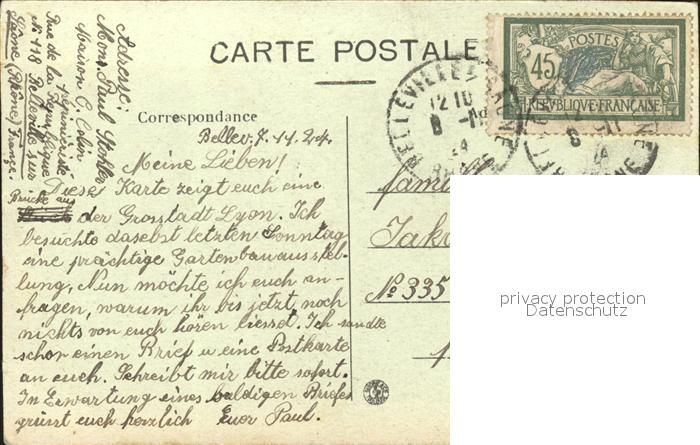 CARTE POSTALE
POSTES
45
REPUBLIQUE FRANÇAISE
BELLEVILLE S SAONE
12 10
8 -11
24
Correspondance
Bellev. 7. 11. 24.
Adresse:
Mons. Paul Stohler
Maison C. Colin
pépinieriste
Rue de la République
No 118 Belleville sur
Saône (Rhône) France.
Meine Lieben!
Diese Karte zeigt euch eine
Brücke aus
der Grosstadt Lyon. Ich
besuchte daselbst letzten Sonntag
eine prächtige Gartenbauausstel-
lung, Nun möchte ich euch an-
fragen, warum ihr bis jetzt noch
nichts von euch hören liesset. Ich sandte
schon einen Brief u eine Postkarte
an euch. Schreibt mir bitte sofort.
In Erwartung eines baldigen Briefes
grüsst euch herzlich Euer Paul.
Ad
Fami
Jako
No 335
privacy protection
Datenschutz